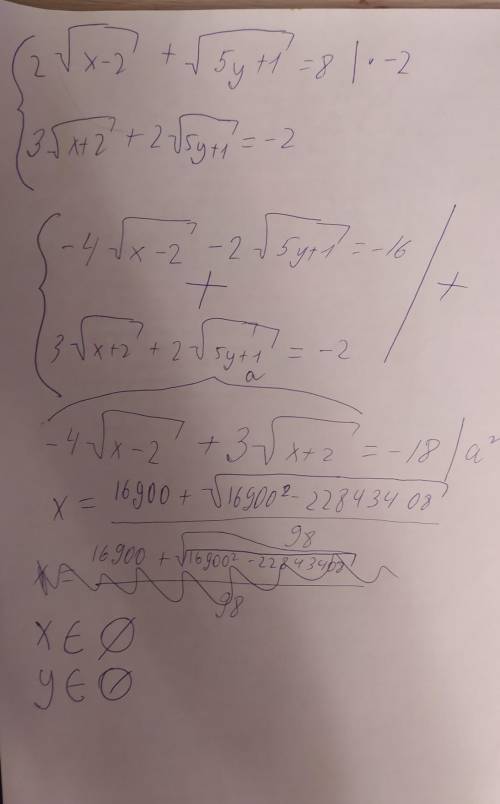 2√(x-2) + √(5y+1) = 8 | · -2
3√(x+2) + 2√(5y+1) = -2
-4√(x-2) - 2√(5y+1) = -16
+ +
3√(x+2) + 2√(5y+1) = -2
a
-4√(x-2) + 3√(x+2) = -18 | a²
x = (16900 + √(16900² - 22843408)) / 98
x = (16900 + √(16900² - 22843408)) / 98
x ∈ ∅
y ∈ ∅